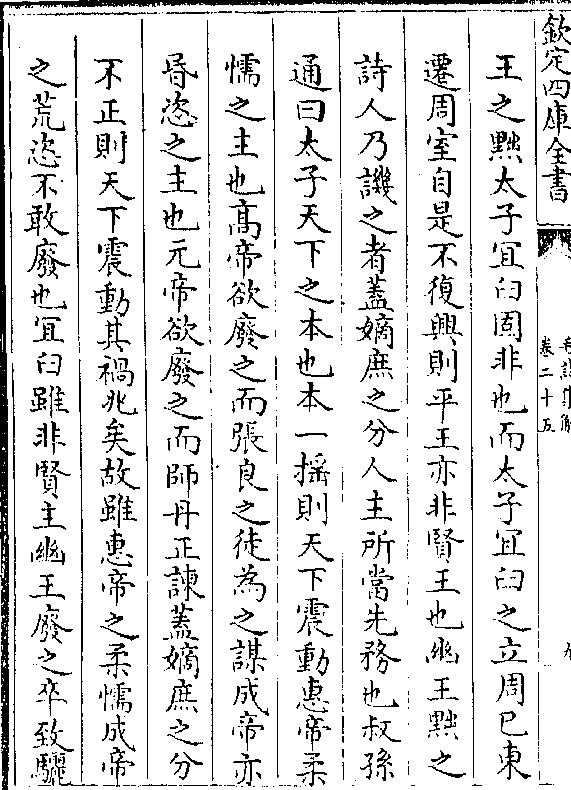 欽定四庫全書
卷二十五
王之黜太子宜臼固非也而太子宜臼之立周已東
遷周室自是不復興則平王亦非賢王也幽王黜之
詩人乃譏之者蓋嫡庶之分人主所當先務也叔孫
通曰太子天下之本也本一揺則天下震動惠帝柔
懦之主也髙帝欲廢之而張良之徒為之謀成帝亦
昬恣之主也元帝欲廢之而師丹正諫蓋嫡庶之分
不正則天下震動其禍兆矣故雖惠帝之柔懦成帝
之荒恣不敢廢也冝臼雖非賢主幽王廢之卒致驪